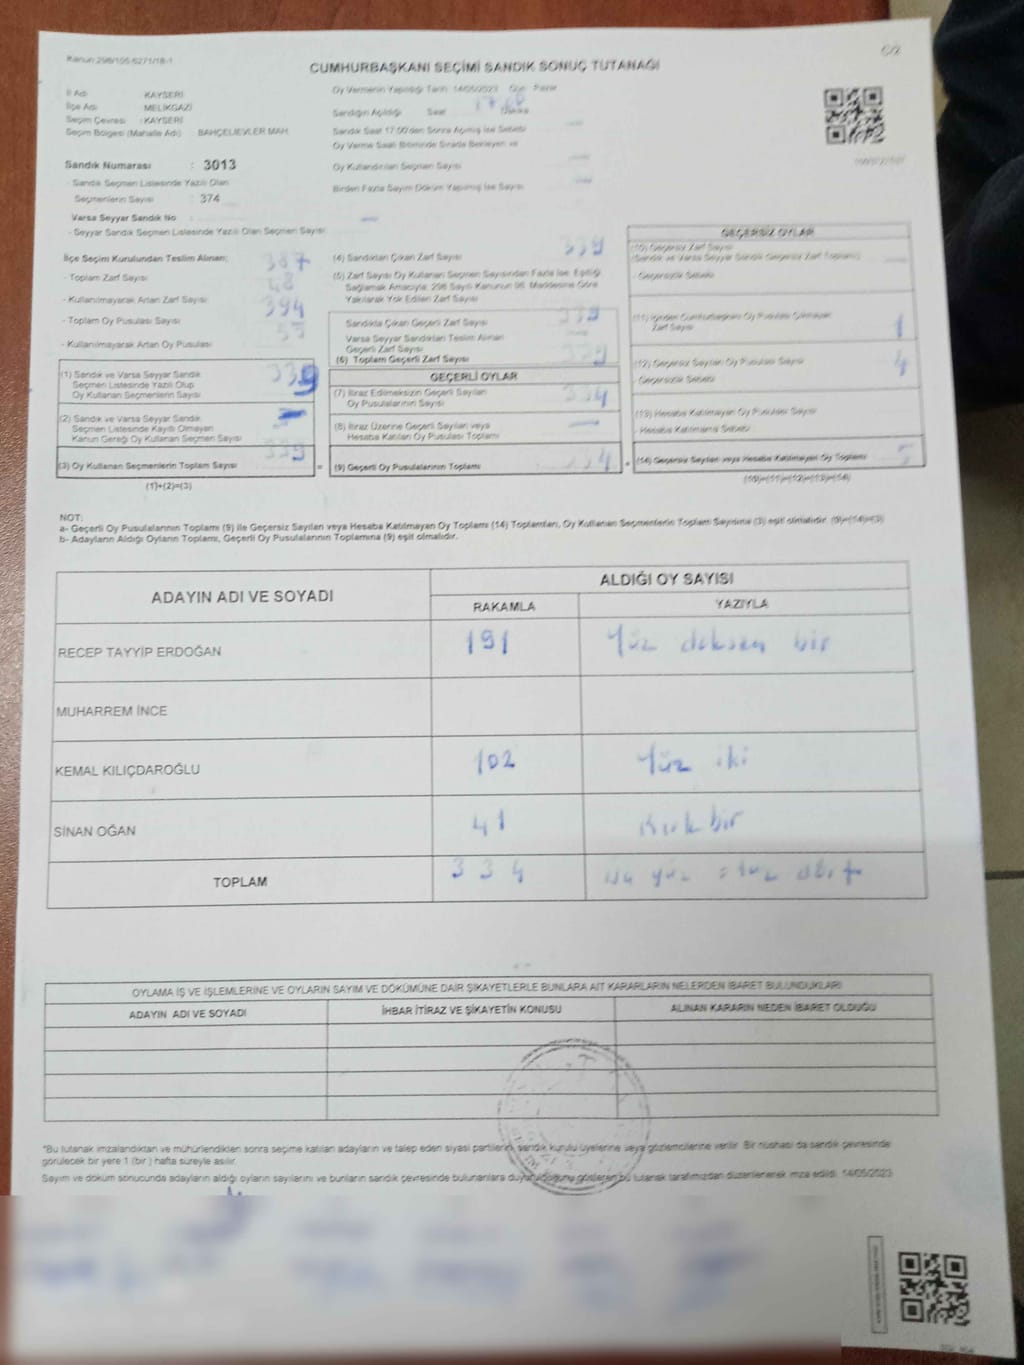 Kanun:298/105.6271/18-1
C/2
CUMHURBAŞKANI SEÇİMİ SANDIK SONUÇ TUTANAĞI
İl Adı KAYSERİ
İlçe Adı MELİKGAZİ
Seçim Çevresi : KAYSERİ
Seçim Bölgesi (Mahalle Adı) BAHÇELİEVLER MAH.
Sandık Numarası : 3013
- Sandık Seçmen Listesinde Yazılı Olan
Seçmenlerin Sayısı : 374
Varsa Seyyar Sandık No
- Seyyar Sandık Seçmen Listesinde Yazılı Olan Seçmen Sayısı
Oy Vermenin Yapıldığı Tarih: 14/05/2023 Gün: Pazar
Sandığın Açıldığı Saat 17.00 Dakika
Sandık Saat 17.00'den Sonra Açılmış İse Sebebi
Oy Verme Saati Bitiminde Sırada Bekleyen ve
Oy Kullandırılan Seçmen Sayısı
Birden Fazla Sayım Döküm Yapılmış İse Sayısı
İlçe Seçim Kurulundan Teslim Alınan;
- Toplam Zarf Sayısı 387
- Kullanılmayarak Artan Zarf Sayısı 48
- Toplam Oy Pusulası Sayısı 394
- Kullanılmayarak Artan Oy Pusulası 55
(1) Sandık ve Varsa Seyyar Sandık
Seçmen Listesinde Yazılı Olup
Oy Kullanan Seçmenlerin Sayısı 339
(2) Sandık ve Varsa Seyyar Sandık
Seçmen Listesinde Kayıtlı Olmayan
Kanun Gereği Oy Kullanan Seçmen Sayısı
(3) Oy Kullanan Seçmenlerin Toplam Sayısı 339
(1)+(2)=(3)
(4) Sandıktan Çıkan Zarf Sayısı 339
(5) Zarf Sayısı Oy Kullanan Seçmen Sayısından Fazla İse, Eşitliği
Sağlamak Amacıyla, 298 Sayılı Kanunun 98. Maddesine Göre
Yakılarak Yok Edilen Zarf Sayısı
Sandıkta Çıkan Geçerli Zarf Sayısı 339
Varsa Seyyar Sandıktan Teslim Alınan
Geçerli Zarf Sayısı
(6) Toplam Geçerli Zarf Sayısı 339
GEÇERLİ OYLAR
(7) İtiraz Edilmeksizin Geçerli Sayılan
Oy Pusulalarının Sayısı 334
(8) İtiraz Üzerine Geçerli Sayılan veya
Hesaba Katılan Oy Pusulası Toplamı
(9) Geçerli Oy Pusulalarının Toplamı 334
GEÇERSİZ OYLAR
(10) Geçersiz Zarf Sayısı
(Sandık ve Varsa Seyyar Sandık Geçersiz Zarf Toplamı)
- Geçersizlik Sebebi
(11) İçinden Cumhurbaşkanı Oy Pusulası Çıkmayan
Zarf Sayısı 1
(12) Geçersiz Sayılan Oy Pusulası Sayısı 4
- Geçersizlik Sebebi
(13) Hesaba Katılmayan Oy Pusulası Sayısı
- Hesaba Katılmama Sebebi
(14) Geçersiz Sayılan veya Hesaba Katılmayan Oy Toplamı 5
(10)+(11)+(12)+(13)=(14)
NOT:
a- Geçerli Oy Pusulalarının Toplamı (9) ile Geçersiz Sayılan veya Hesaba Katılmayan Oy Toplamı (14) Toplamları, Oy Kullanan Seçmenlerin Toplam Sayısına (3) eşit olmalıdır. (9)+(14)=(3)
b- Adayların Aldığı Oyların Toplamı, Geçerli Oy Pusulalarının Toplamına (9) eşit olmalıdır.
ADAYIN ADI VE SOYADI ALDIĞI OY SAYISI
RAKAMLA YAZIYLA
RECEP TAYYİP ERDOĞAN 191 Yüz doksan bir
MUHARREM İNCE
KEMAL KILIÇDAROĞLU 102 Yüz iki
SİNAN OĞAN 41 Kırk bir
TOPLAM 334 yüz otuz dört
OYLAMA İŞ VE İŞLEMLERİNE VE OYLARIN SAYIM VE DÖKÜMÜNE DAİR ŞİKAYETLERLE BUNLARA AİT KARARLARIN NELERDEN İBARET BULUNDUKLARI
ADAYIN ADI VE SOYADI İHBAR İTİRAZ VE ŞİKAYETİN KONUSU ALINAN KARARIN NEDEN İBARET OLDUĞU
*Bu tutanak imzalandıktan ve mühürlendikten sonra seçime katılan adayların ve talep eden siyasi partilerin, sandık kurulu üyelerine veya gözlemcilerine verilir. Bir nüshası da sandık çevresinde
görülecek bir yere 1 (bir ) hafta süreyle asılır.
Sayım ve döküm sonucunda adayların aldığı oyların sayılarını ve bunların sandık çevresinde bulunanlara duyurulduğunu gösteren bu tutanak tarafımızdan düzenlenerek imza edildi. 14/05/2023